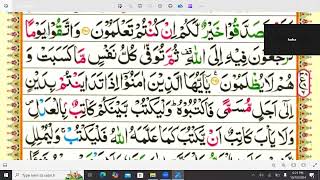 تَصَدَّقُوْا خَيْرٌ لَّكُمْ اِنْ كُنْتُمْ تَعْلَمُوْنَ وَاتَّقُوْا يَوْمًا
تُرْجَعُوْنَ فِيْهِ اِلَى اللّٰهِ ثُمَّ تُوَفّٰى كُلُّ نَفْسٍ مَّا كَسَبَتْ وَ
هُمْ لَا يُظْلَمُوْنَ يٰۤاَيُّهَا الَّذِيْنَ اٰمَنُوْۤا اِذَا تَدَايَنْتُمْ بِدَيْنٍ
اِلٰۤى اَجَلٍ مُّسَمًّى فَاكْتُبُوْهُ وَلْيَكْتُبْ بَّيْنَكُمْ كَاتِبٌۢ بِالْعَدْلِ
وَلَا يَاْبَ كَاتِبٌ اَنْ يَّكْتُبَ كَمَا عَلَّمَهُ اللّٰهُ فَلْيَكْتُبْ وَلْيُمْلِلِ
Type here to search